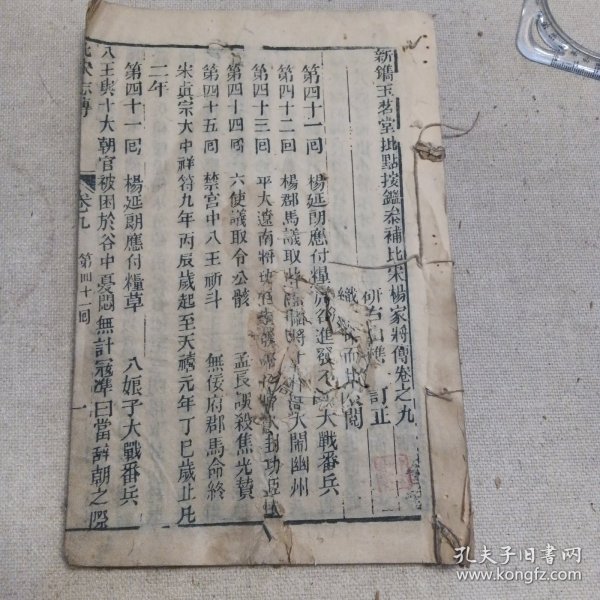 新鐫玉茗堂批點按鑑叅補北宋楊家將傳卷之九
研石山樵 訂正
織 閱
第四十一回 楊延朗應付糧 大戰番兵
第四十二回 楊郡馬議取 大鬧幽州
第四十三回 平大遼南將 封功
第四十四回 六使議取令公骸 孟良誤殺焦光贊
第四十五回 禁宮中八王祈斗 無佞府郡馬命終
宋眞宗大中祥符九年丙辰歲起至天禧元年丁巳歲止凡
二年
第四十一回 楊延朗應付糧草 八娘子大戰番兵
八王與十大朝官被困於谷中憂悶無計寇凖曰當辭朝之際
北宋志傳 卷九 第四十一回 一
孔夫子旧书网
www.kongfz.com